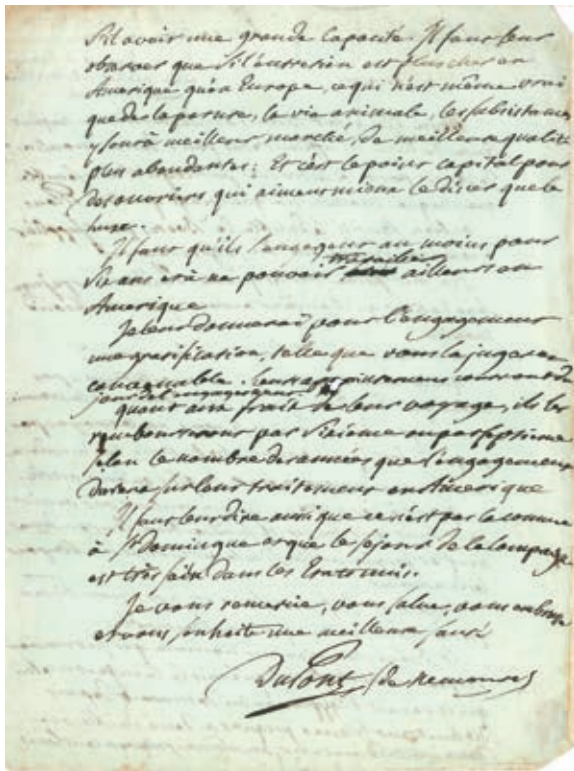 s'il avoit une grande capacité. Il faut leur
observer que si l'entretien est plus cher en
Amerique qu'en Europe, ce qui n'est même vrai
que de la parure, la vie animale, les subsistances
y sont à meilleur marché, de meilleure qualité
plus abondantes; Et c'est le point capital pour
des ouvriers, qui aiment mieux le diner que le
luxe.
Il faut qu'ils s'engagent au moins pour
six ans et à ne pouvoir travailler ailleurs en
Amerique
Je leur donnerai pour l'engagement
une gratification, telle que vous la jugerez
convenable. Leurs appointemens courront du
jour de l'engagement.
quant aux frais de leur voyage, ils les
rembourseront par sixieme ou par septieme
selon le nombre des années que l'engagement
durera sur leur traitement en Amerique
Il faut leur dire aussi que ce n'est pas là comme
à St Domingue et que le séjour de la campagne
est très sain dans les Etats unis.
Je vous remercie, vous salue, vous embrasse
et vous souhaite une meilleure santé
DuPont (de Nemours)